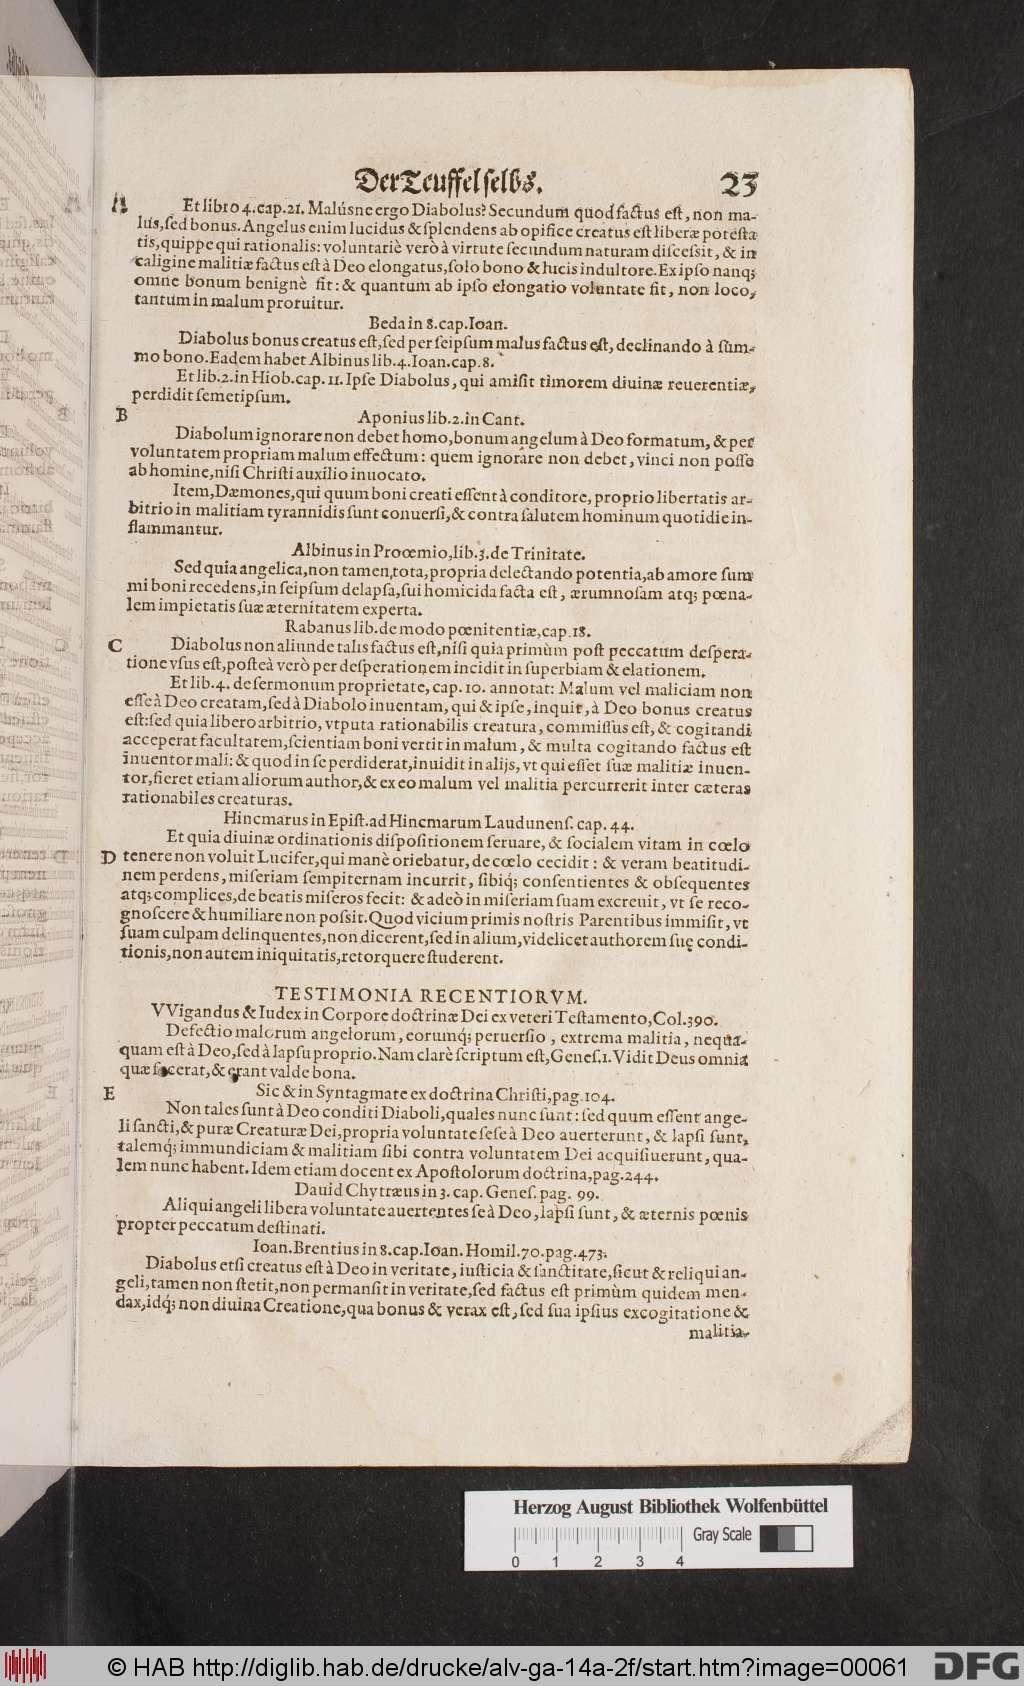 Der Teuffel selbs. 23
A Et libro 4. cap. 21. Malúsne ergo Diabolus? Secundum quod factus est, non ma-
lus, sed bonus. Angelus enim lucidus & splendens ab opifice creatus est liberæ potesta
tis, quippe qui rationalis: voluntariè verò à virtute secundum naturam discessit, & in
caligine malitiæ factus est à Deo elongatus, solo bono & lucis indultore. Ex ipso nanq;
omne bonum benignè fit: & quantum ab ipso elongatio voluntate fit, non loco,
tantum in malum proruitur.
Beda in 8. cap. Ioan.
Diabolus bonus creatus est, sed per seipsum malus factus est, declinando à sum-
mo bono. Eadem habet Albinus lib. 4. Ioan. cap. 8.
Et lib. 2. in Hiob. cap. 11. Ipse Diabolus, qui amisit timorem diuinæ reuerentiæ,
perdidit semetipsum.
B Aponius lib. 2. in Cant.
Diabolum ignorare non debet homo, bonum angelum à Deo formatum, & per
voluntatem propriam malum effectum: quem ignorare non debet, vinci non posse
ab homine, nisi Christi auxilio inuocato.
Item, Dæmones, qui quum boni creati essent à conditore, proprio libertatis ar-
bitrio in malitiam tyrannidis sunt conuersi, & contra salutem hominum quotidie in-
flammantur.
Albinus in Prooemio, lib. 3. de Trinitate.
Sed quia angelica, non tamen, tota, propria delectando potentia, ab amore sum
mi boni recedens, in seipsum delapsa, sui homicida facta est, ærumnosam atq; pœna-
lem impietatis suæ æternitatem experta.
Rabanus lib. de modo pœnitentiæ, cap. 18.
C Diabolus non aliunde talis factus est, nisi quia primùm post peccatum despera-
tione vsus est, posteà verò per desperationem incidit in superbiam & elationem.
Et lib. 4. de sermonum proprietate, cap. 10. annotat: Malum vel maliciam non
esse à Deo creatam, sed à Diabolo inuentam, qui & ipse, inquit, à Deo bonus creatus
est: sed quia libero arbitrio, vtputa rationabilis creatura, commissus est, & cogitandi
acceperat facultatem, scientiam boni vertit in malum, & multa cogitando factus est
inuentor mali: & quod in se perdiderat, inuidit in alijs, vt qui esset suæ malitiæ inuen-
tor, fieret etiam aliorum author, & ex eo malum vel malitia percurrerit inter cæteras
rationabiles creaturas.
Hincmarus in Epist. ad Hincmarum Laudunens. cap. 44.
Et quia diuinæ ordinationis dispositionem seruare, & socialem vitam in cœlo
D tenere non voluit Lucifer, qui manè oriebatur, de cœlo cecidit: & veram beatitudi-
nem perdens, miseriam sempiternam incurrit, sibiq́; consentientes & obsequentes
atq; complices, de beatis miseros fecit: & adeò in miseriam suam excreuit, vt se reco-
gnoscere & humiliare non possit. Quod vicium primis nostris Parentibus immisit, vt
suam culpam delinquentes, non dicerent, sed in alium, videlicet authorem suę condi-
tionis, non autem iniquitatis, retorquere studerent.
TESTIMONIA RECENTIORVM.
VVigandus & Iudex in Corpore doctrinæ Dei ex veteri Testamento, Col. 390.
Defectio malorum angelorum, eorumq́; peruersio, extrema malitia, nequa-
quam est à Deo, sed à lapsu proprio. Nam clarè scriptum est, Genes. 1. Vidit Deus omnia
quæ fecerat, & erant valde bona.
E Sic & in Syntagmate ex doctrina Christi, pag. 104.
Non tales sunt à Deo conditi Diaboli, quales nunc sunt: sed quum essent ange-
li sancti, & puræ Creaturæ Dei, propria voluntate sese à Deo auerterunt, & lapsi sunt,
talemq́; immundiciam & malitiam sibi contra voluntatem Dei acquisiuerunt, qua-
lem nunc habent. Idem etiam docent ex Apostolorum doctrina, pag. 244.
Dauid Chytræus in 3. cap. Genes. pag. 99.
Aliqui angeli libera voluntate auertentes se à Deo, lapsi sunt, & æternis pœnis
propter peccatum destinati.
Ioan. Brentius in 8. cap. Ioan. Homil. 70. pag. 473.
Diabolus etsi creatus est à Deo in veritate, iusticia & sanctitate, sicut & reliqui an-
geli, tamen non stetit, non permansit in veritate, sed factus est primùm quidem men-
dax, idq́; non diuina Creatione, qua bonus & verax est, sed sua ipsius excogitatione &
malitia.
Herzog August Bibliothek Wolfenbüttel
Gray Scale
0 1 2 3 4
© HAB http://diglib.hab.de/drucke/alv-ga-14a-2f/start.htm?image=00061 DFG